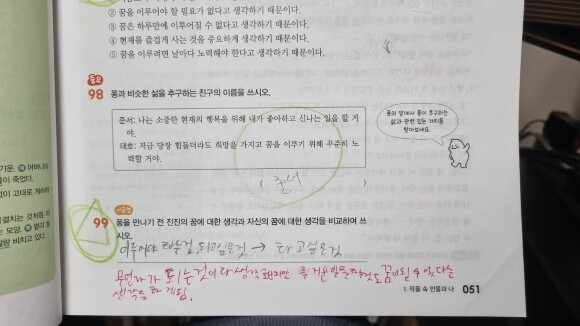 ② 꿈을 이루어야 할 필요가 없다고 생각하기 때문이다.
③ 꿈은 하루만에 이루어질 수 없다고 생각하기 때문이다.
④ 현재를 즐겁게 사는 것을 중요하게 생각하기 때문이다.
⑤ 꿈을 이루려면 날마다 노력해야 한다고 생각하기 때문이다.
중요
98 퐁과 비슷한 삶을 추구하는 친구의 이름을 쓰시오.
준서: 나는 소중한 현재의 행복을 위해 내가 좋아하고 신나는 일을 할 거
야.
태호: 지금 당장 힘들더라도 희망을 가지고 꿈을 이루기 위해 꾸준히 노
력할 거야.
퐁의 말에서 퐁이 추구하는
삶과 관련 있는 가치를
찾아보세요.
( 준서 )
99 서술형
퐁을 만나기 전 진진의 꿈에 대한 생각과 자신의 꿈에 대한 생각을 비교하여 쓰
시오.
이루어야
→ 하고싶은것
무언가가 되는것이다 생각했지만
꿈이될 수 있다는
생각을 하게됨.
기운, 어머니의
들이 죽었다.
없이 고대로 계속하
걸치는 것처럼 자
는 모양. 멀리
비치고 있다.
1. 작품 속 인물과 나 051